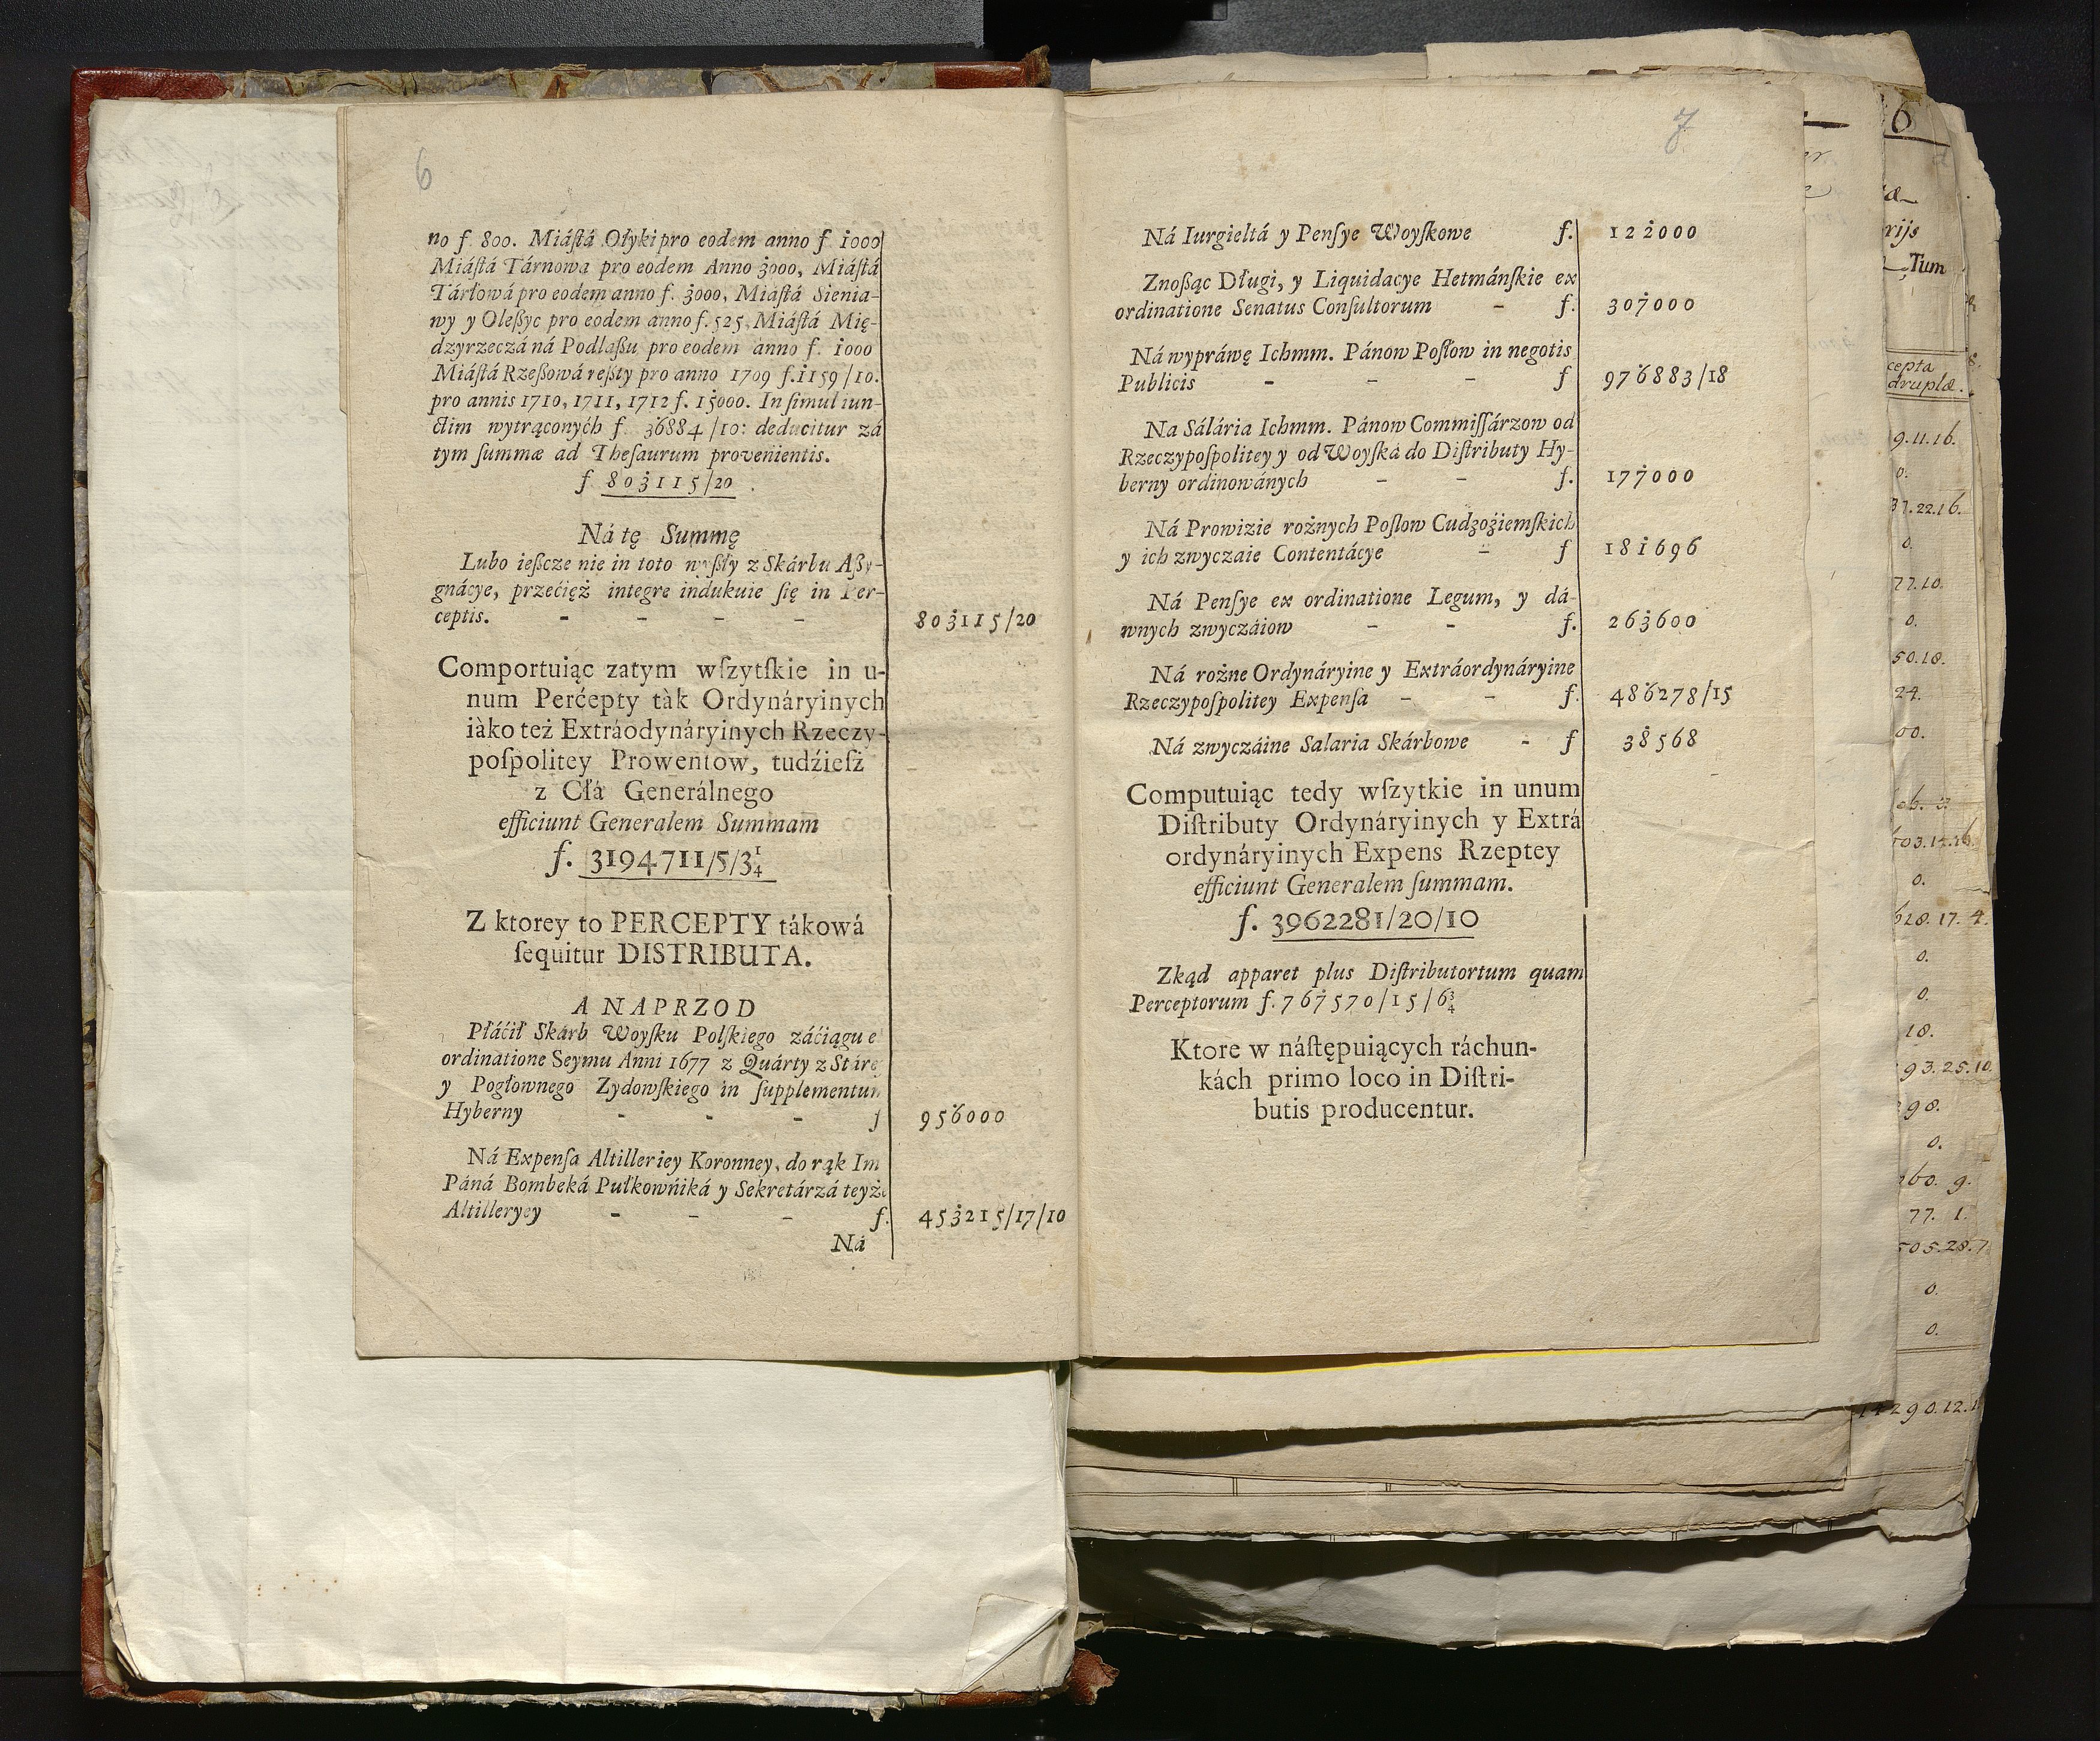 6
no f 800. Miáſtá Ołyki pro eodem anno f 1000
Miáſtá Tárnowa pro eodem Anno 3000, Miáſtá
Tárłowá pro eodem anno f. 3000, Miáſtá Sienia-
wy y Oleßyc pro eodem anno f. 525, Miáſtá Mię-
dzyrzeczá ná Podlaßu pro eodem anno f. 1000
Miáſtá Rzeßowá reßty pro anno 1709 f. 1159/10.
pro annis 1710, 1711, 1712 f. 15000. In ſimul iun-
ctim wytrąconyćh f. 36884/10: deducitur zá
tym ſummæ ad Theſaurum provenientis.
f 803115/20
Ná tę Summę
Lubo ießcze nie in toto wyßły z Skárbu Aßy-
gnácye, przećięż integre indukuie ſię in Per-
ceptis. - - - - 803115/20
Comportuiąc zatym wſzytſkie in u-
num Perćepty tàk Ordynáryinych
iàko też Extráodynáryinych Rzeczy-
poſpolitey Prowentow, tudźieſz
z Cłá Generálnego
efficiunt Generalem Summam
f. 3194711/5/3¼
Z ktorey to PERCEPTY tákowá
ſequitur DISTRIBUTA.
A NAPRZOD
Płáćił Skárb Woyſku Polſkiego záćiągu e
ordinatione Seymu Anni 1677 z Quárty z Stárey
y Pogłownego Zydowſkiego in ſupplementum
Hyberny - - - f 956000
Ná Expenſa Altilleriey Koronney, do rąk Im
Páná Bombeká Pułkowńiká y Sekretárzá teyże
Altilleryey - - - f. 453215/17/10
Ná
7
Ná Iurgieltá y Penſye Woyſkowe f. 122000
Znoßąc Długi, y Liquidacye Hetmánſkie ex
ordinatione Senatus Conſultorum - f. 307000
Ná wypráwę Ichmm. Pánow Poſłow in negotis
Publicis - - - f 976883/18
Na Sálária Ichmm. Pánow Commiſſárzow od
Rzeczypoſpolitey y od Woyſká do Diſtributy Hy-
berny ordinowánych - - f. 177000
Ná Prowizie rożnych Poſlow Cudzoźiemſkich
y ich zwyczaie Contentácye - f 181696
Ná Penſye ex ordinatione Legum, y dá-
wnych zwyczáiow - - f. 263600
Ná rożne Ordynáryine y Extráordynáryine
Rzeczypoſpolitey Expenſa - - f. 486278/15
Ná zwyczáine Salaria Skárbowe - f 38568
Computuiąc tedy wſzytkie in unum
Diſtributy Ordynáryinych y Extrá
ordynáryinych Expens Rzeptey
efficiunt Generalem ſummam.
f. 3962281/20/10
Zkąd apparet plus Diſtributortum quam
Perceptorum f. 767570/15/6¾
Ktore w náſtępuiących ráchun-
kách primo loco in Diſtri-
butis producentur.
6
rijs
Tum
cepta
druplæ.
9.11.16.
0.
37.22.16.
0.
77.10.
0.
50.18.
24.
00.
0.
628.17.4.
0.
0.
18.
93.25.10.
0.
60. 9.
77. 1.
505.28.7
0.
0.